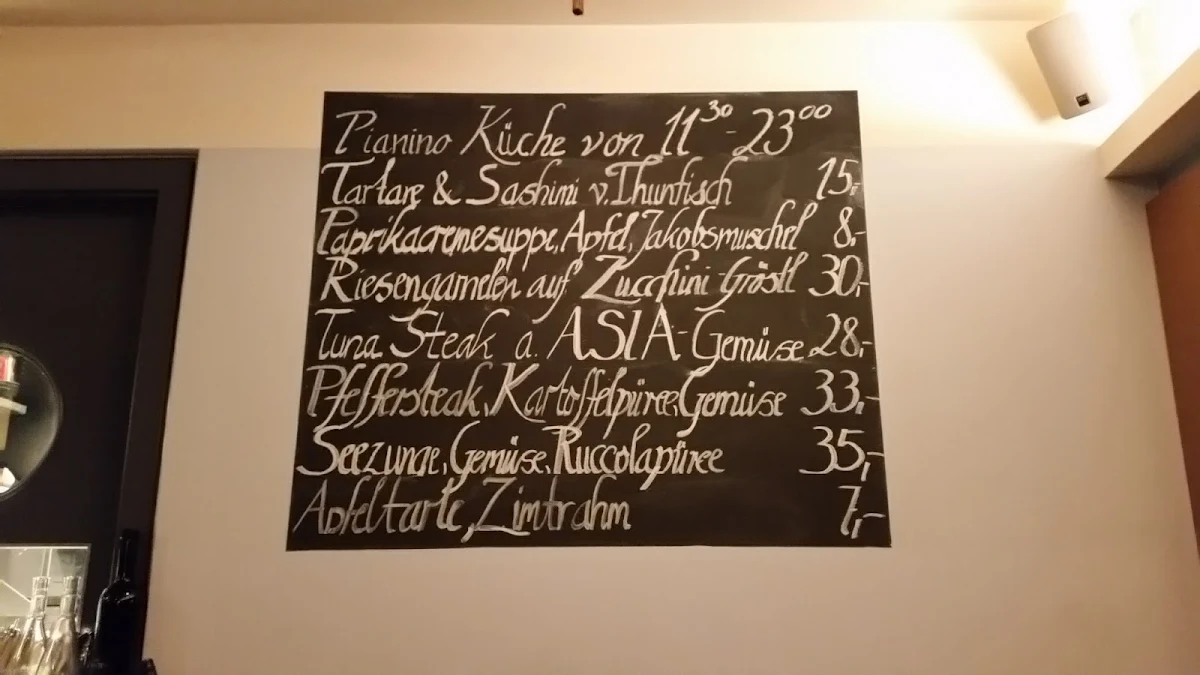 Pianino Küche von 11³⁰ - 23⁰⁰
Tartare & Sashimi v. Thunfisch 15,-
Paprikacremesuppe, Apfel, Jakobsmuschel 8,-
Riesengarnelen auf Zucchini-Gröstl 30,-
Tuna Steak a. ASIA-Gemüse 28,-
Pfeffersteak, Kartoffelpüree, Gemüse 33,-
Seezunge, Gemüse, Ruccolapüree 35,-
Apfeltarte, Zimtrahm 7,-